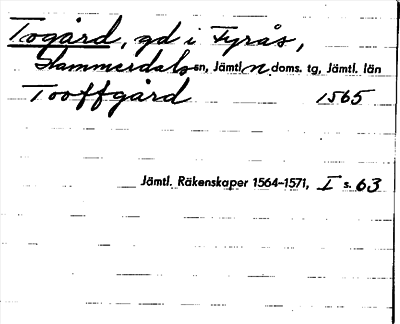 Togård, gd i Fyrås,
Hammerdals sn, Jämtl. n. doms. tg, Jämtl. län
Tooffgård 1565
Jämtl. Räkenskaper 1564-1571, I s. 63